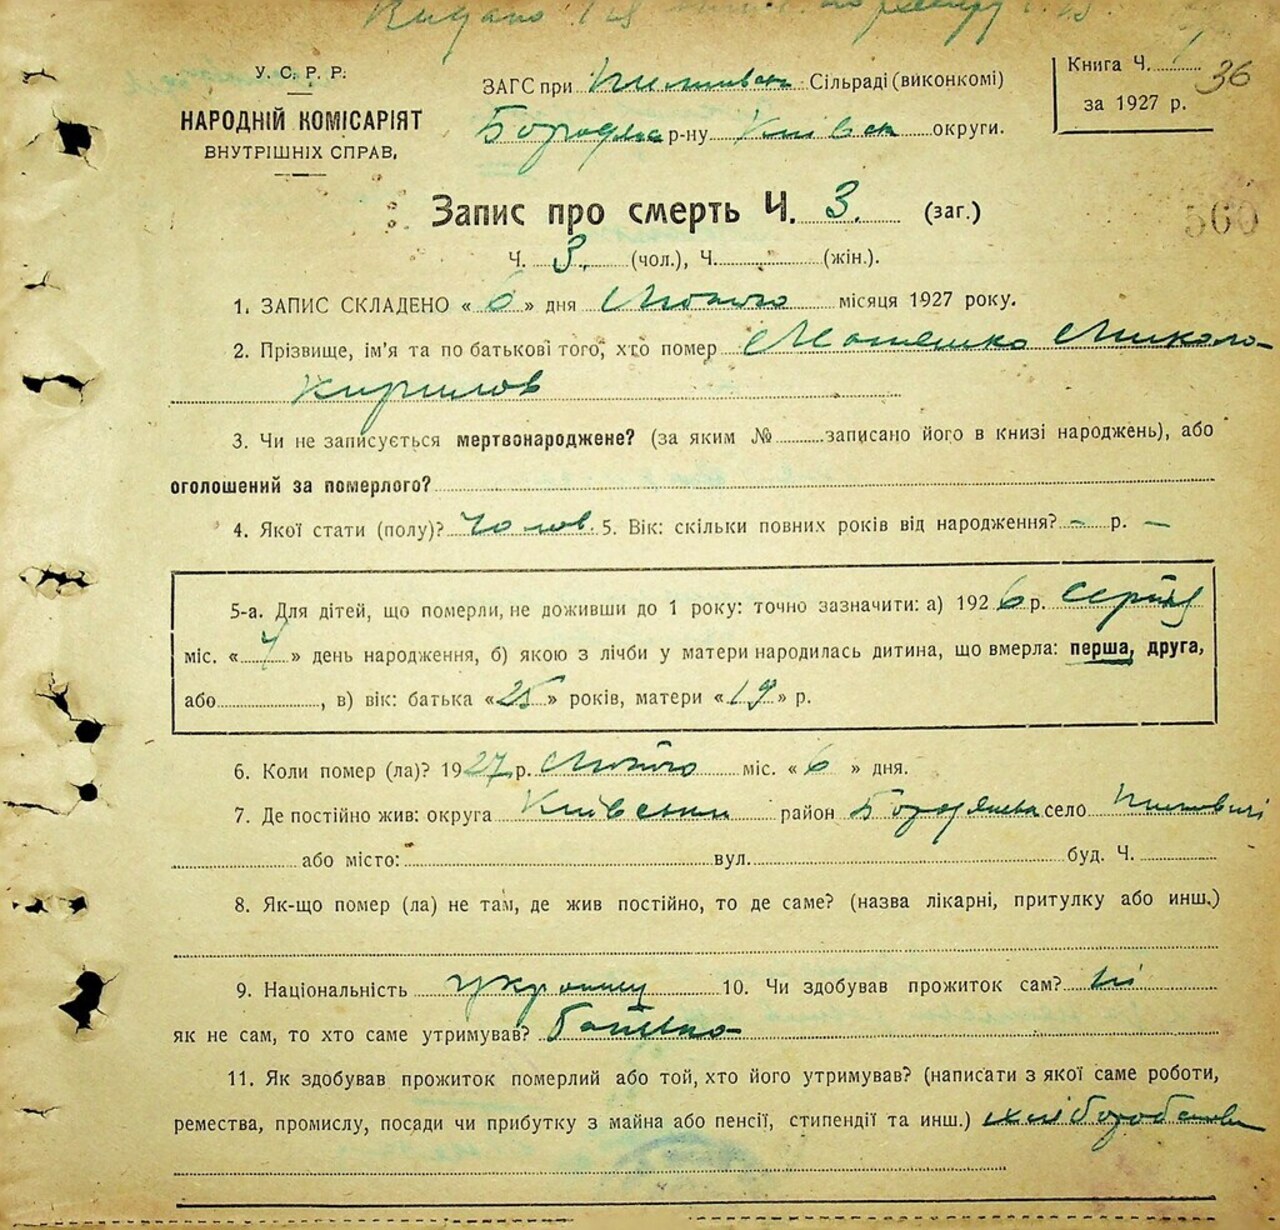 Видано
У. С. Р. Р.
НАРОДНІЙ КОМІСАРІЯТ
ВНУТРІШНІХ СПРАВ,
ЗАГС при Сільраді (виконкомі)
Бородянк р-ну Київськ округи.
Книга Ч. 1 36
за 1927 р.
Запис про смерть Ч. 3. (заг.)
560
Ч. 3. (чол.), Ч. (жін.).
1. ЗАПИС СКЛАДЕНО « 6 » дня Лютого місяця 1927 року.
2. Прізвище, ім'я та по батькові того, хто помер Микола
Кирилов
3. Чи не записується мертвонароджене? (за яким № записано його в книзі народжень), або
оголошений за померлого?
4. Якої стати (полу)? Чолов. 5. Вік: скільки повних років від народження? – р. –
5-а. Для дітей, що померли, не доживши до 1 року: точно зазначити: а) 1926 р. серпня
міс. « 7 » день народження, б) якою з лічби у матери народилась дитина, що вмерла: перша, друга,
або , в) вік: батька « 25 » років, матери « 19 » р.
6. Коли помер (ла)? 1927 р. Лютого міс. « 6 » дня.
7. Де постійно жив: округа Київська район Бородянськ село
або місто: вул. буд. Ч.
8. Як-що помер (ла) не там, де жив постійно, то де саме? (назва лікарні, притулку або инш.)
9. Національність українц 10. Чи здобував прожиток сам? ні
як не сам, то хто саме утримував? батько
11. Як здобував прожиток померлий або той, хто його утримував? (написати з якої саме роботи,
ремества, промислу, посади чи прибутку з майна або пенсії, стипендії та инш.)